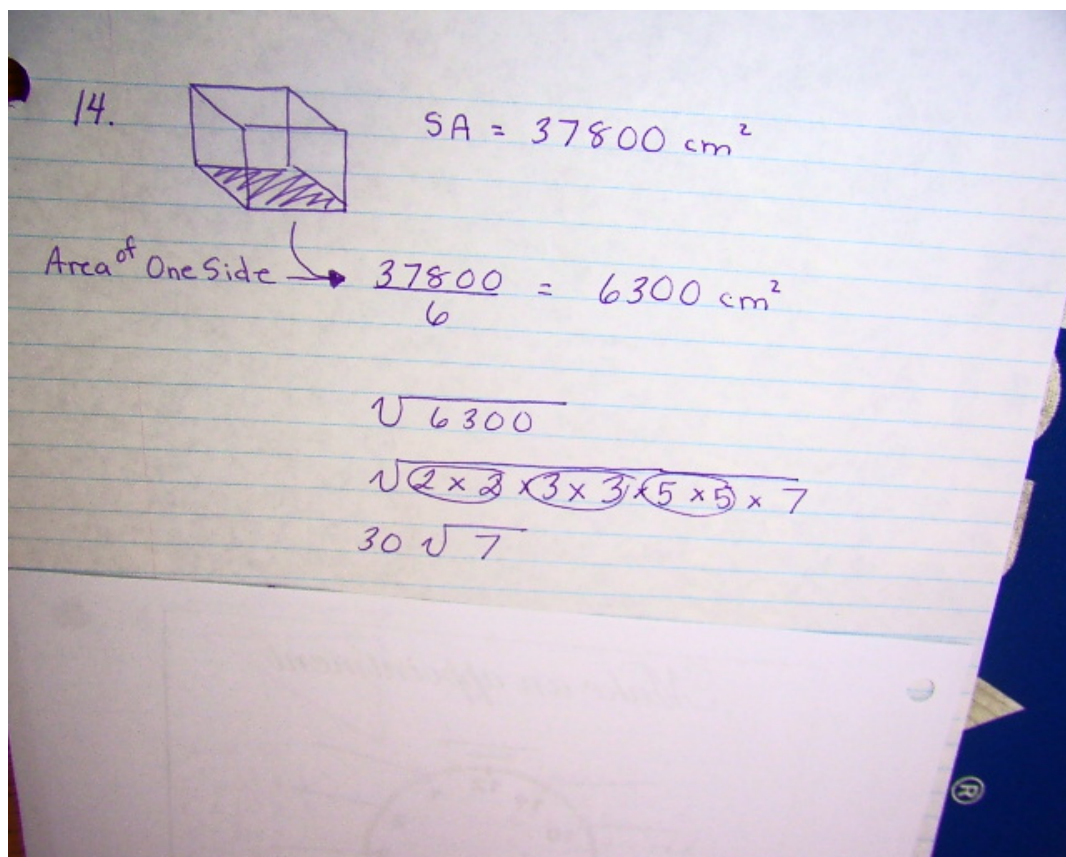 14.
SA = 37800 cm²
Area of One Side → 37800/6 = 6300 cm²
√6300
√2 × 2 × 3 × 3 × 5 × 5 × 7
30 √7
®